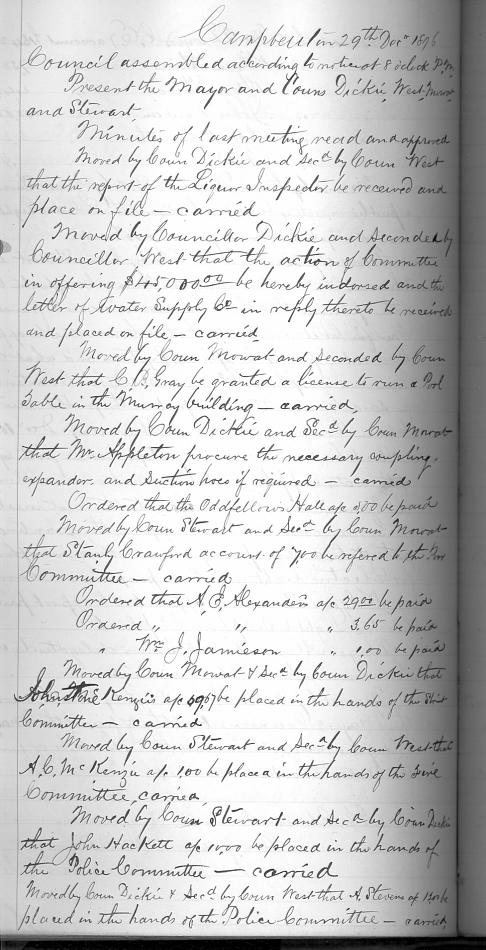 Campbellton 29th Decr 1896
Council assembled according to notice at 8 oclock P.M.
Present the Mayor and Couns Dickie, West, Mowat
and Stewart,
Minutes of last meeting read and approved
Moved by Coun Dickie and Secd by Coun West
that the report of the Liquor Inspector be received and
place on file — carried
Moved by Councillor Dickie and Seconded by
Councillor West that the action of Committee
in offering $45,000.00 be hereby indorsed and the
letter of Water Supply Co in reply thereto be received
and placed on file — carried
Moved by Coun Mowat and Seconded by Coun
West that C. B. Gray be granted a license to run a Pool
Table in the Murray building — carried,
Moved by Coun Dickie and Secd by Coun Mowat
that Mr. Appleton procure the necessary coupling,
expander, and Suction hoes if required — carried
Ordered that the Oddfellows Hall a/c 5.00 be paid
Moved by Coun Stewart and Secd by Coun Mowat
that Stanly Crawford account of 7.00 be refered to the
Committee — carried
Ordered that A. E. Alexanders a/c 29.00 be paid
Ordered " " " 3.65 be paid
" Wm J. Jamieson " 1.00 be paid
Moved by Coun Mowat & Secd by Coun Dickie that
Johnstone Kenzies a/c be placed in the hands of the Strt
Committee — carried
Moved by Coun Stewart and Secd by Coun West that
A. C. McKenzie a/c 1.00 be placed in the hands of the Fire
Committee, carried,
Moved by Coun Stewart and Secd by Coun Dickie
that John Hackett a/c 10.00 be placed in the hands of
the Police Committee — carried
Moved by Coun Dickie & Secd by Coun West that A. Stevens a/c be
placed in the hands of the Police Committee — carried,